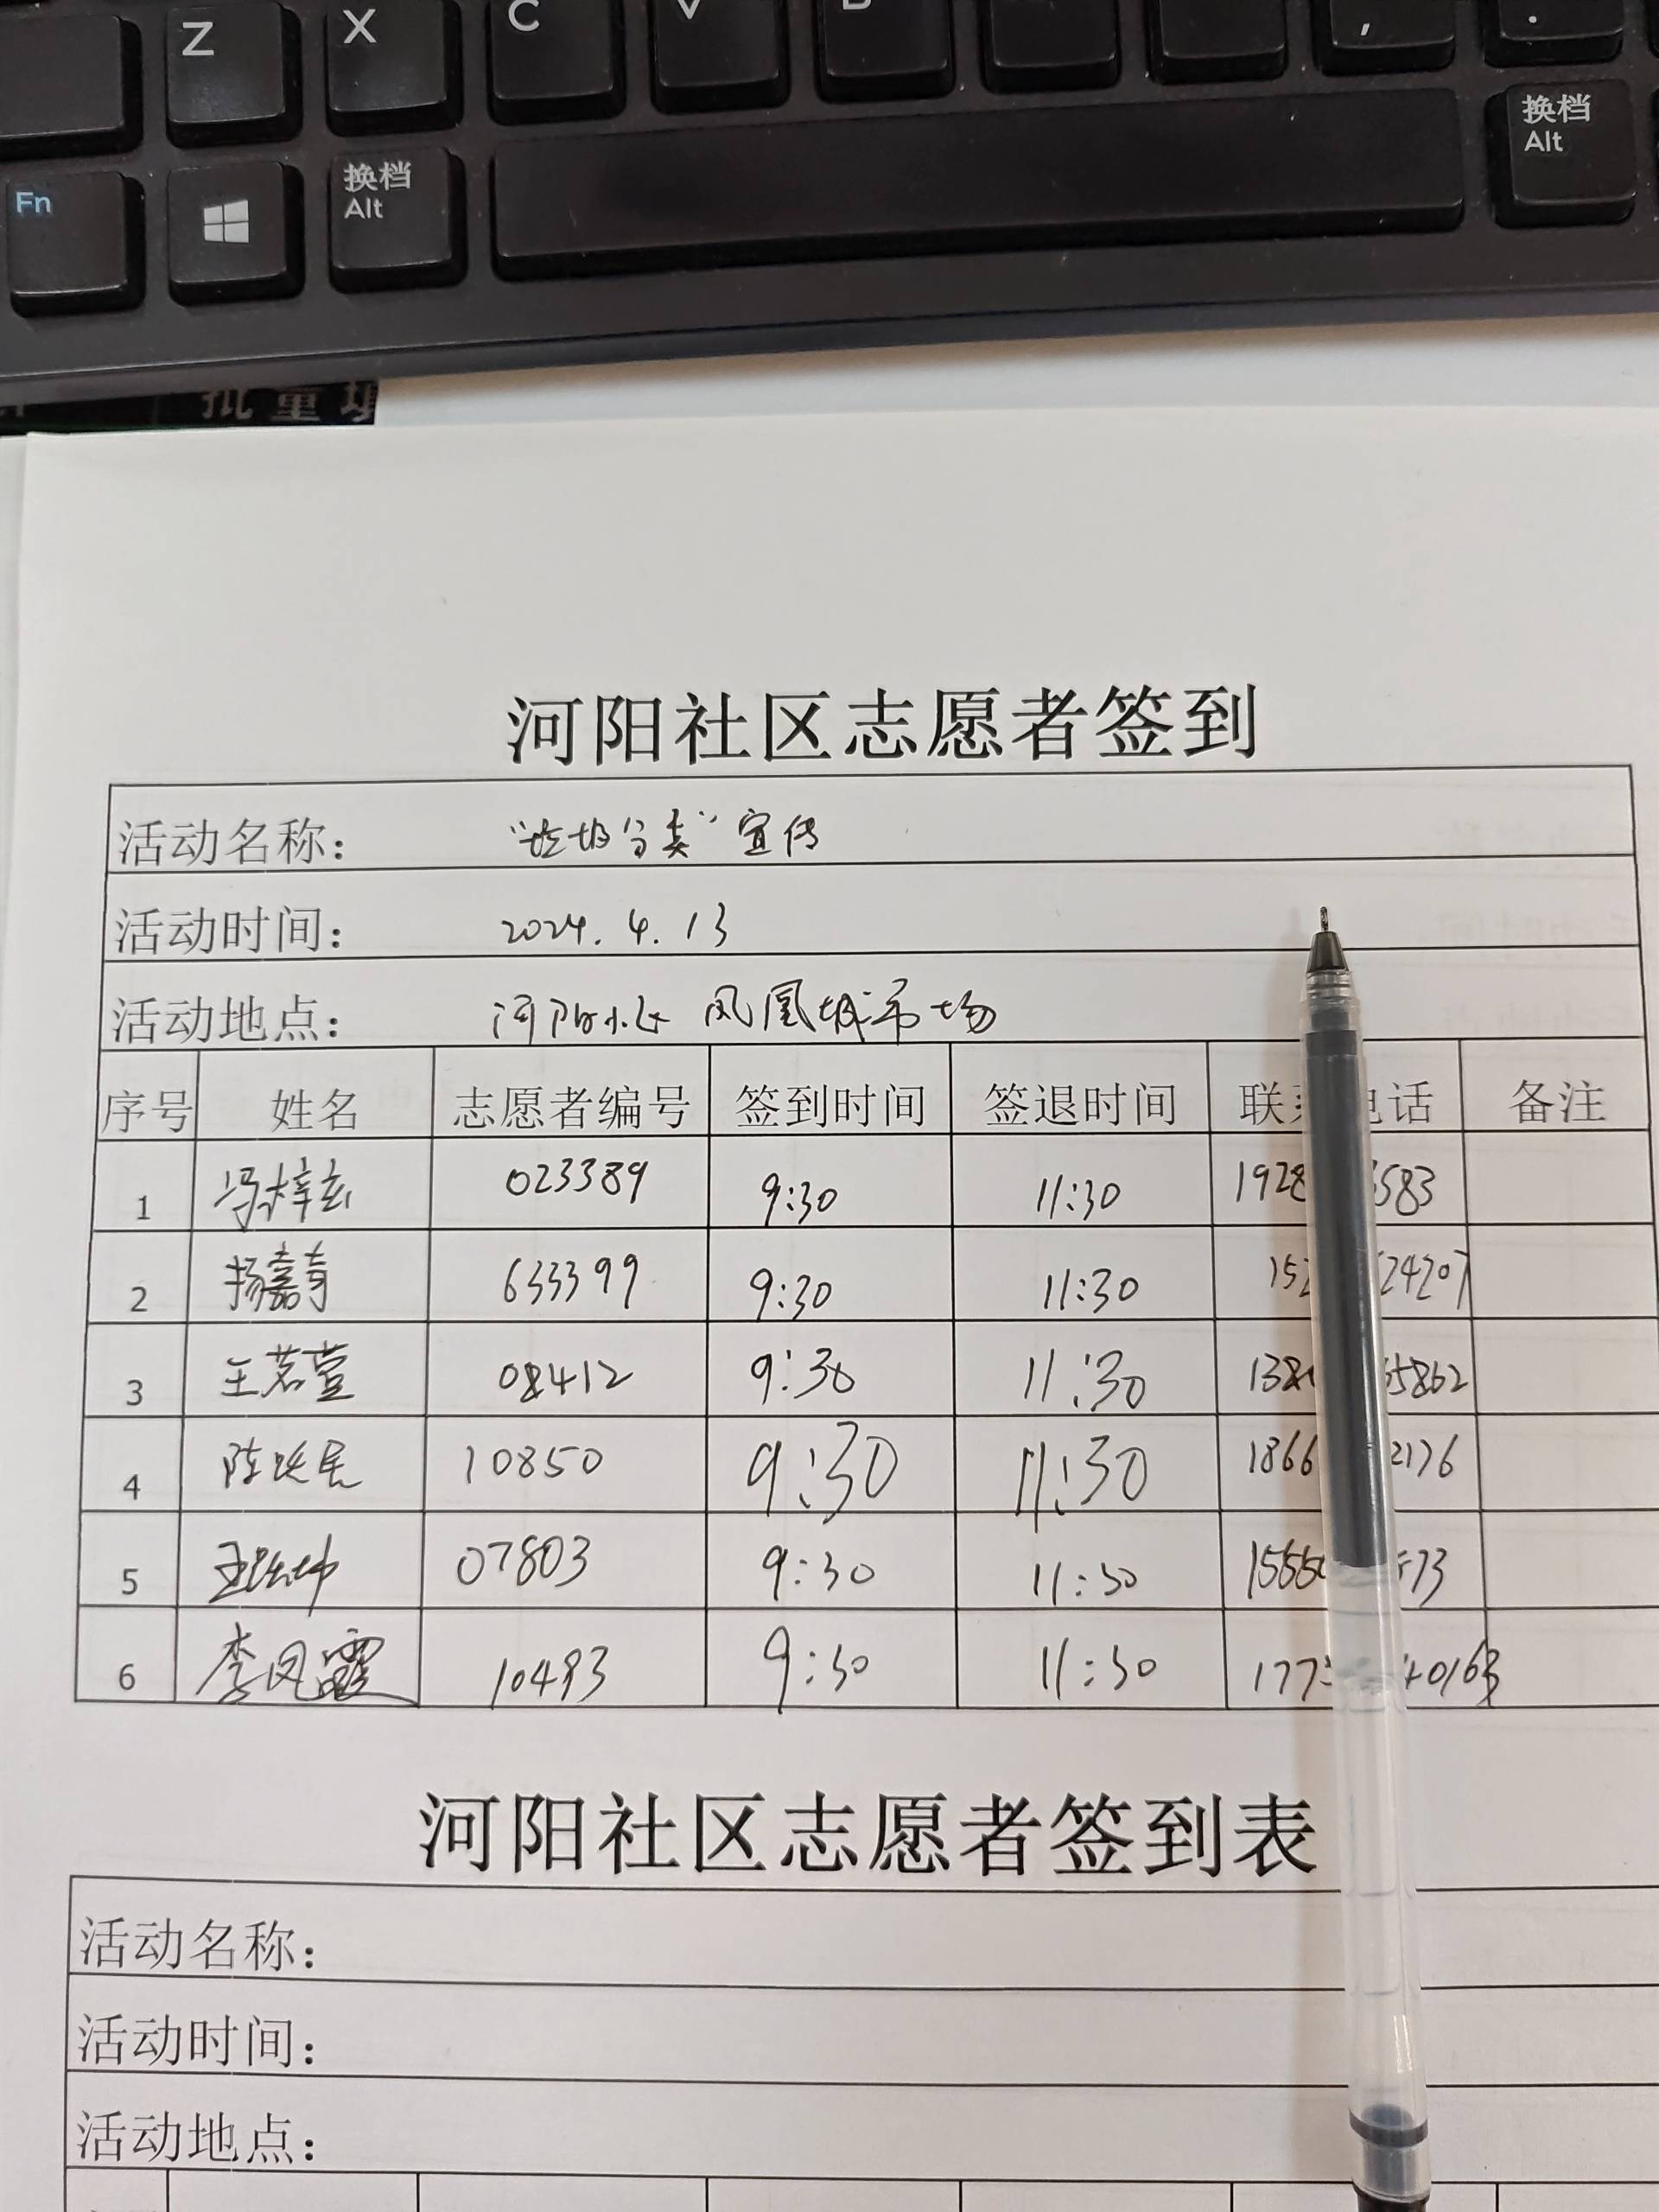 Z X C V B , .
换档
Alt
换档
Alt
Fn
批量填
河阳社区志愿者签到
活动名称： “垃圾分类”宣传
活动时间： 2024.4.13
活动地点： 河阳小区 凤凰城市场
序号 姓名 志愿者编号 签到时间 签退时间 联系电话 备注
1 冯梓玄 023389 9:30 11:30 1928 583
2 杨嘉奇 633399 9:30 11:30 152 24207
3 王若萱 08412 9:30 11:30 138 65862
4 陈 10850 9:30 11:30 1866 2176
5 王 坤 07803 9:30 11:30 1555 573
6 李凤霞 10493 9:30 11:30 177 40163
河阳社区志愿者签到表
活动名称：
活动时间：
活动地点：